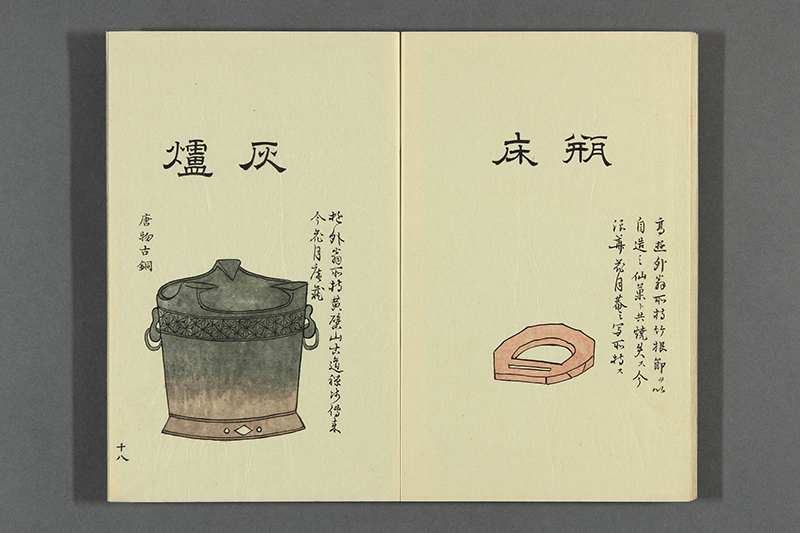 瓶床
高遊外翁所持竹根節ヲ以
自造之仙菓ト共焼失ス今
花月菴之写所持ス
灰爐
遊外翁所持黄檗山古道禅師傳来
今花月庵蔵
唐物古銅
十八